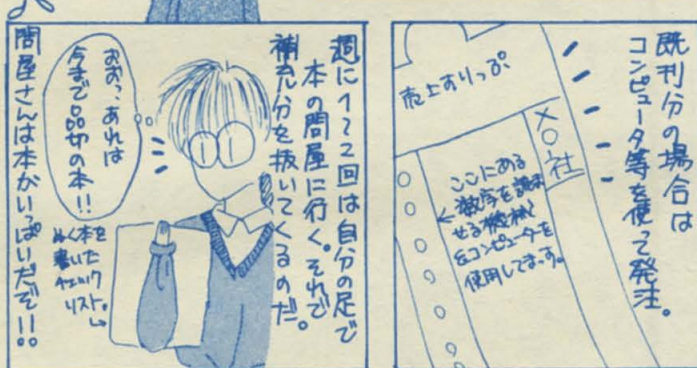 既刊分の場合は
コンピュータ等を使って発注。
売上すりっぷ
×○社
ここにある
数字を読ま
せる機械
&コンピューターを
使用してまっす。
週に1〜2回は自分の足で
本の問屋に行く。それで
補充分を抜いてくるのだ。
おおっ、あれは
今まで品切の本!!
本を
書いた
チェック
リスト。
問屋さんは本がいっぱいだぞ!!